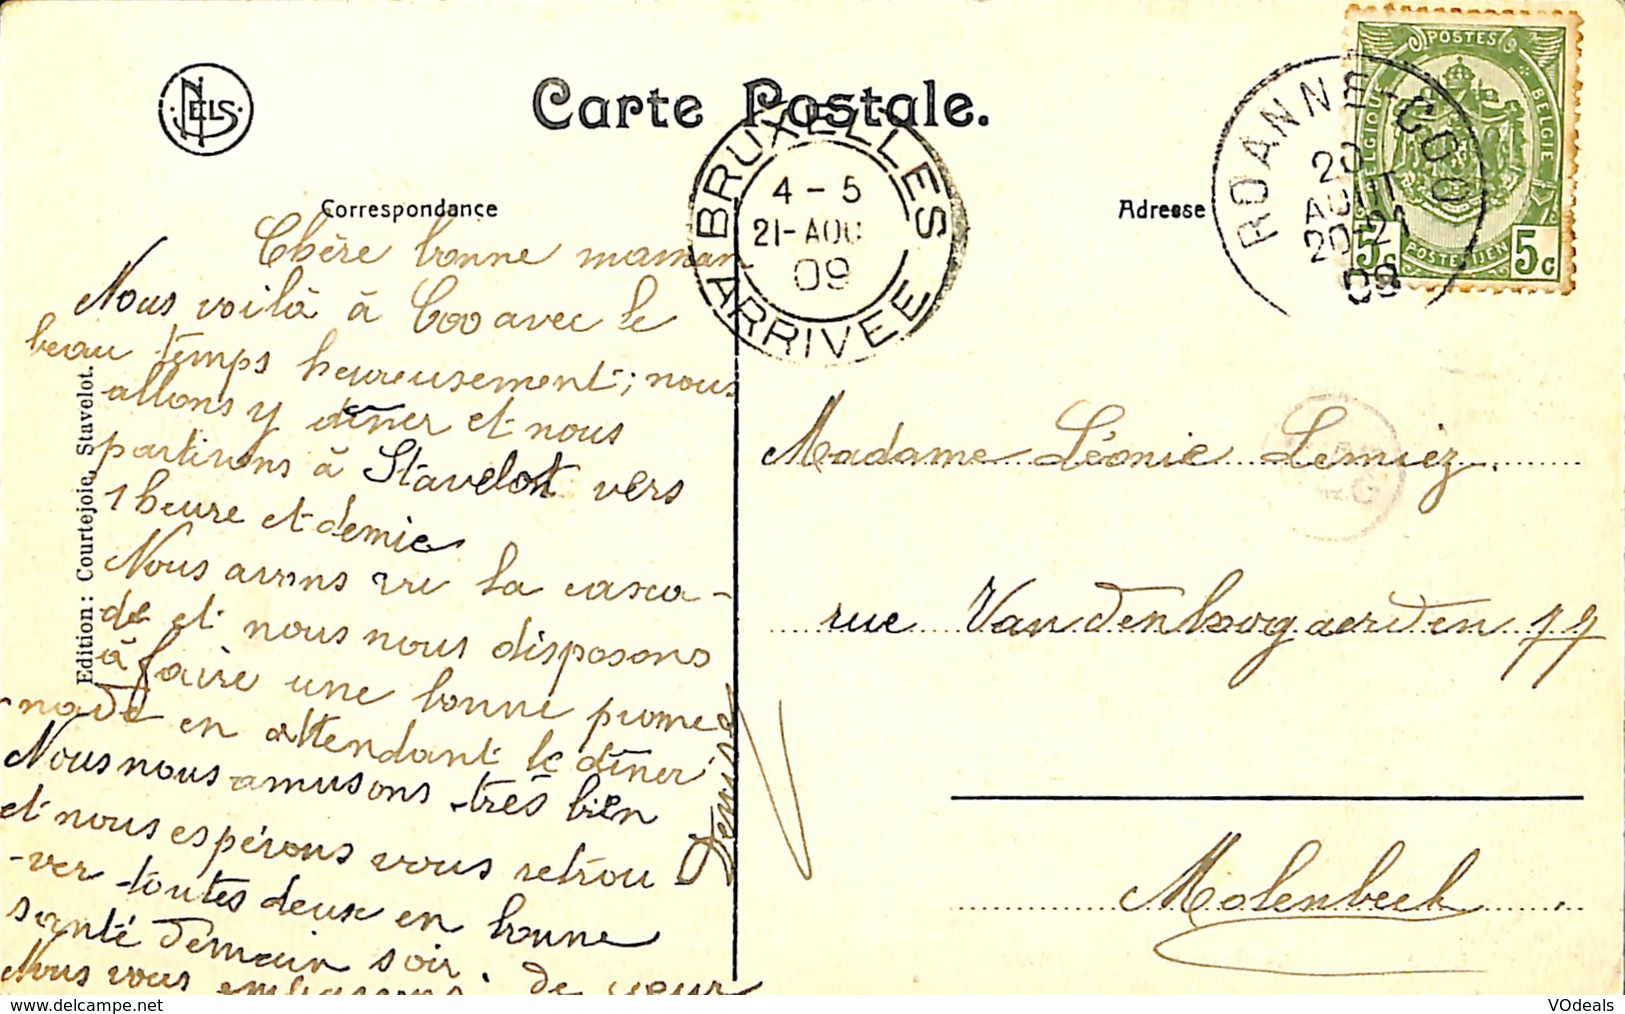 NELS
Carte Postale.
Correspondance
Adresse
Edition: Courtejoie, Stavelot.
BRUXELLES
4-5
21-AOU
09
ARRIVEE
ROANNE-COO
20
AOUT
20-21
09
POSTES
BELGIQUE
BELGIE
POSTERIJEN
5c 5c
Chère bonne maman
Nous voilà à Coo avec le
beau temps heureusement; nous
allons y dîner et nous
partirons à Stavelot vers
1 heure et demie
Nous avons vu la casca-
de et nous nous disposons
à faire une bonne prome
-nade en attendant le dîner.
Nous nous amusons très bien
et nous espérons vous retrou
-ver toutes deux en bonne
santé demain soir.
Nous vous embrassons de coeur
Denise
Madame Léonie Lemiez
rue Vandenboogaerden 77
Molenbeek
© www.delcampe.net
VOdeals